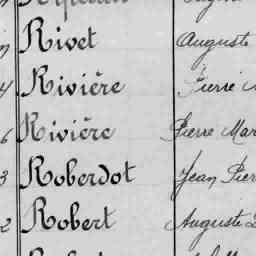 Rivet Auguste
4 Rivière Pierre
6 Rivière Pierre Mar
3 Roberdot Jean Pier
2 Robert Auguste